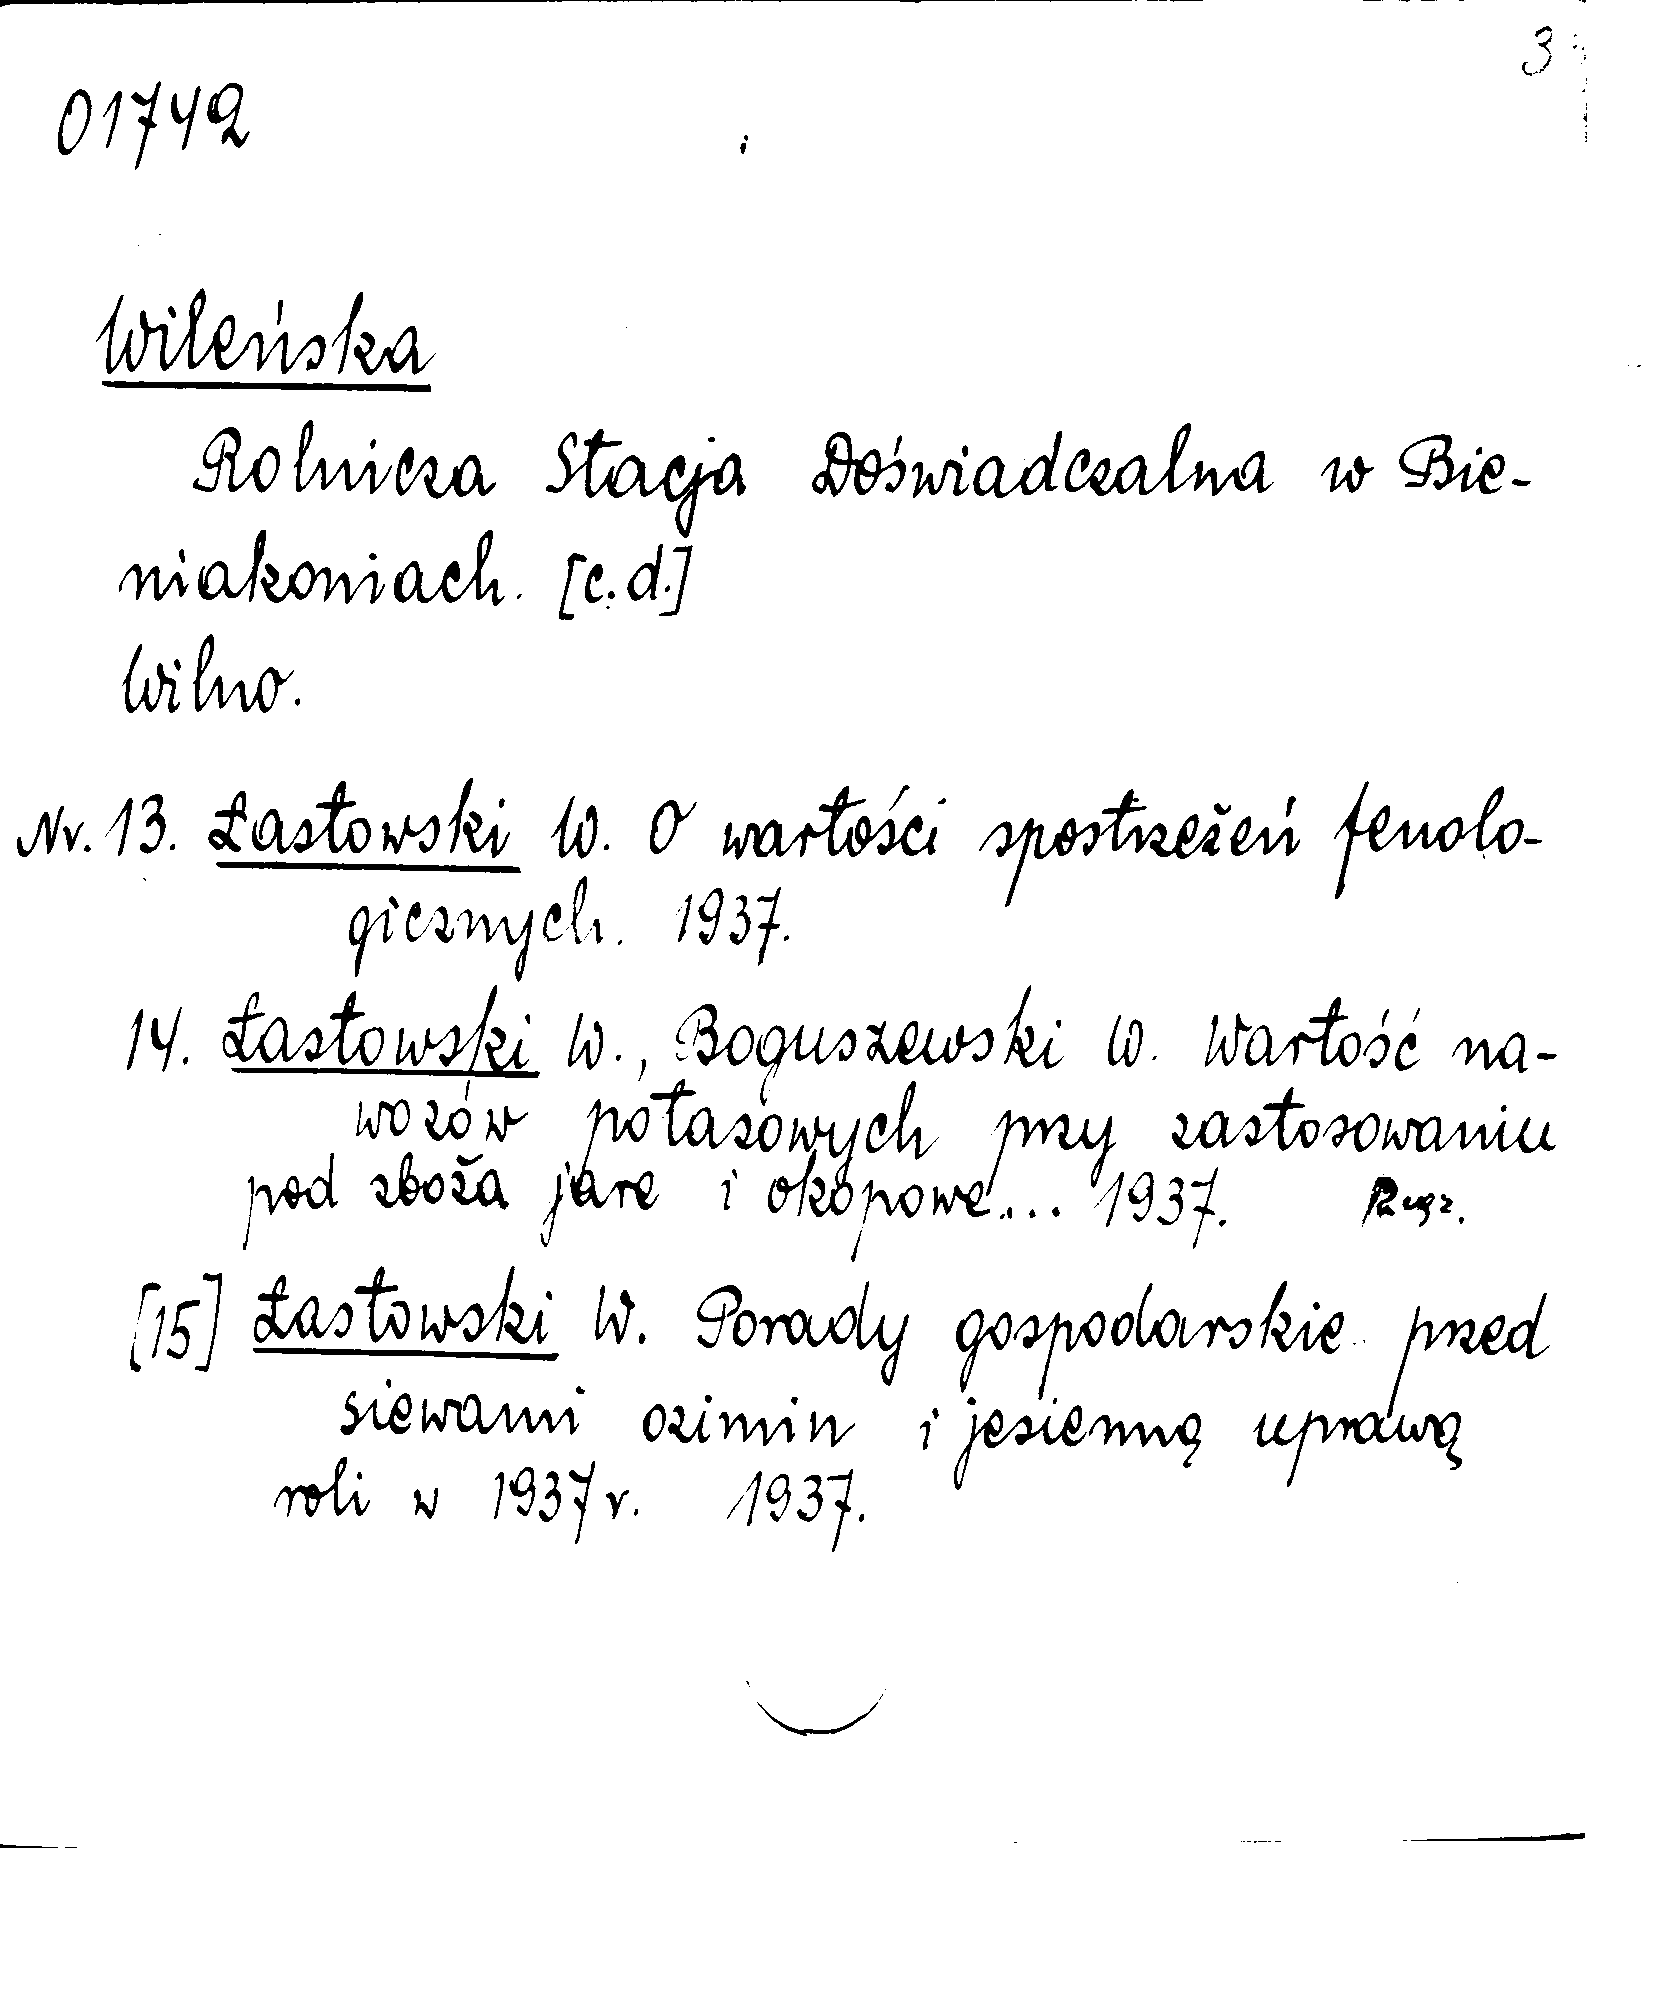 3
01742
Wileńska
Rolnicza Stacja Doświadczalna w Bie-
niakoniach. [c.d.]
Wilno.
Nr. 13. Łastowski W. O wartości spostrzeżeń fenolo-
gicznych. 1937.
14. Łastowski W., Boguszewski W. Wartość na-
wozów potasowych przy zastosowaniu
pod zboża jare i okopowe... 1937.
[15] Łastowski W. Porady gospodarskie przed
siewami ozimin i jesienną uprawą
roli w 1937 r. 1937.